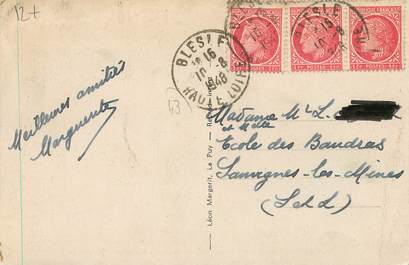 12+
BLESLE
16
10-8
1948
HAUTE LOIRE
43
Meilleures amitiés
Marguerite
Léon Margerit, Le Puy
Madame M. L.
et Melle
Ecole des Baudras
Sanvignes-les-Mines
(S et L)